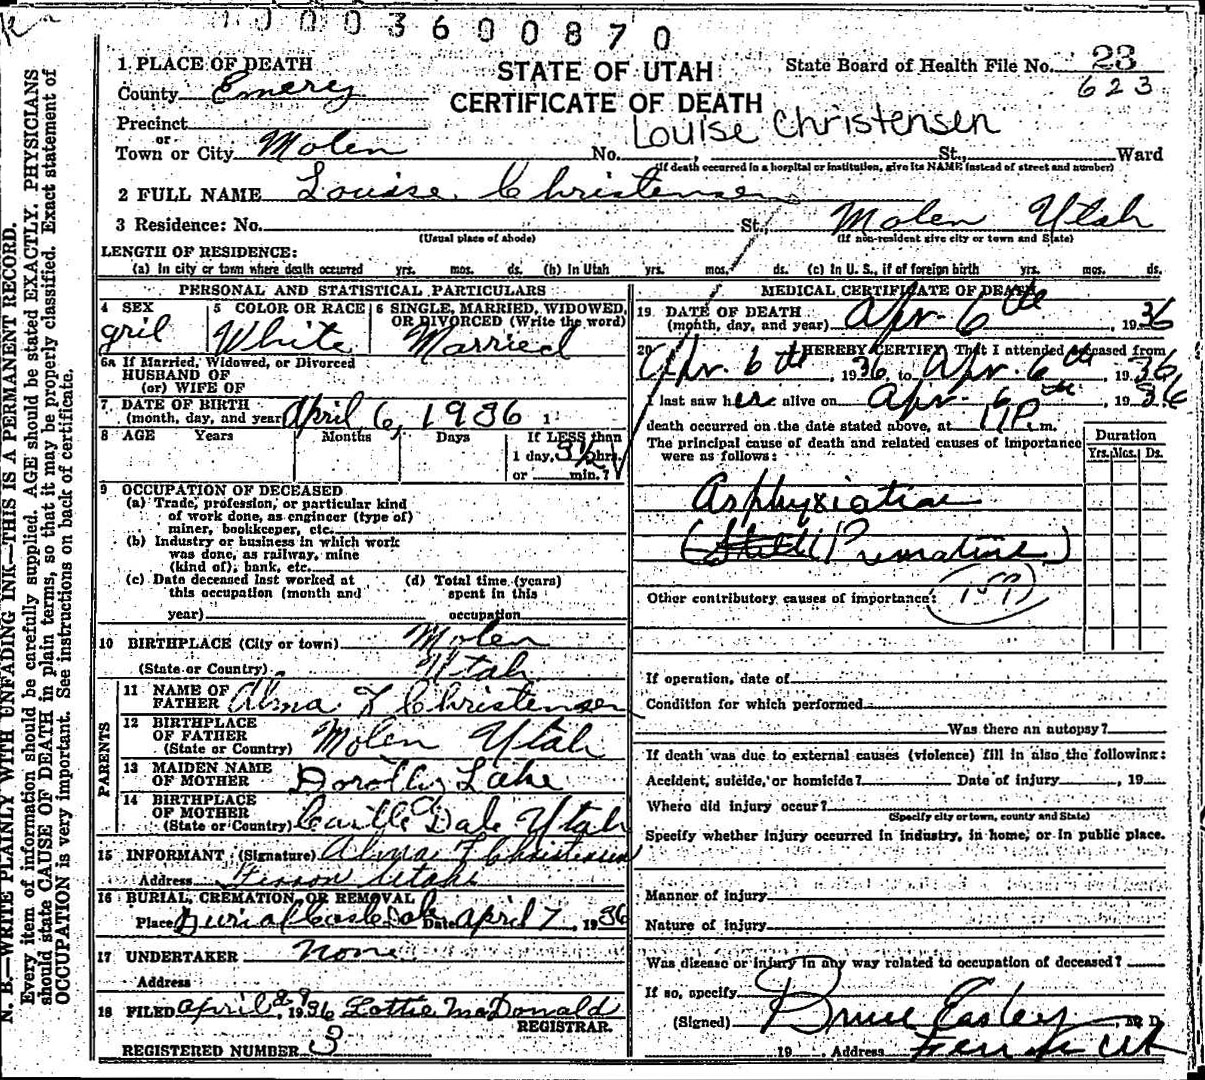 1 0 0 3 6 0 0 8 7 0
1 PLACE OF DEATH
STATE OF UTAH
State Board of Health File No. 23
County Emery
CERTIFICATE OF DEATH
623
Precinct
Louise Christensen
or
Town or City Molen No. , St., Ward
(If death occurred in a hospital or institution, give its NAME instead of street and number)
2 FULL NAME Louise Christensen
3 Residence: No. St., Molen Utah
(Usual place of abode) (If non-resident give city or town and State)
LENGTH OF RESIDENCE:
(a) In city or town where death occurred yrs. mos. ds. (b) In Utah yrs. mos. ds. (c) In U. S., if of foreign birth yrs. mos. ds.
PERSONAL AND STATISTICAL PARTICULARS
4 SEX gril
5 COLOR OR RACE White
6 SINGLE, MARRIED, WIDOWED, OR DIVORCED (Write the word) Married
6a If Married, Widowed, or Divorced
HUSBAND OF
(or) WIFE OF
7 DATE OF BIRTH
(month, day, and year) April 6, 1936 1
8 AGE Years Months Days If LESS than
1 day, 3½ hrs.
or min.?
9 OCCUPATION OF DECEASED
(a) Trade, profession, or particular kind
of work done, as engineer (type of)
miner, bookkeeper, etc.
(b) Industry or business in which work
was done, as railway, mine
(kind of), bank, etc.
(c) Date deceased last worked at
this occupation (month and
year)
(d) Total time (years)
spent in this
occupation
10 BIRTHPLACE (City or town) Molen
(State or Country) Utah
PARENTS
11 NAME OF
FATHER Alma F Christensen
12 BIRTHPLACE
OF FATHER
(State or Country) Molen Utah
13 MAIDEN NAME
OF MOTHER Dorothy Lake
14 BIRTHPLACE
OF MOTHER
(State or Country) Castle Dale Utah
15 INFORMANT (Signature) Alma F Christensen
Address Ferron Utah
16 BURIAL, CREMATION, OR REMOVAL
Place Burial Castle Dale Date April 7, 1936
17 UNDERTAKER none
Address
18 FILED April 29, 1936 Lottie McDonald
REGISTRAR.
REGISTERED NUMBER 3
MEDICAL CERTIFICATE OF DEATH
19 DATE OF DEATH
(month, day, and year) Apr. 6th, 1936
20 I HEREBY CERTIFY, That I attended deceased from
Apr. 6th, 1936, to Apr. 6th, 1936
I last saw her alive on Apr. 6th, 1936
death occurred on the date stated above, at 11 P m.
The principal cause of death and related causes of importance
were as follows:
Duration
Yrs. Mos. Ds.
Asphyxiation
(Premature)
Other contributory causes of importance:
If operation, date of
Condition for which performed
Was there an autopsy?
If death was due to external causes (violence) fill in also the following:
Accident, suicide, or homicide? Date of injury , 19
Where did injury occur?
(Specify city or town, county and State)
Specify whether injury occurred in industry, in home, or in public place.
Manner of injury
Nature of injury
Was disease or injury in any way related to occupation of deceased?
If so, specify
(Signed) Bruce Easley, M D
19 Address Ferron Ut
N. B.—WRITE PLAINLY WITH UNFADING INK—THIS IS A PERMANENT RECORD.
Every item of information should be carefully supplied. AGE should be stated EXACTLY. PHYSICIANS
should state CAUSE OF DEATH in plain terms, so that it may be properly classified. Exact statement of
OCCUPATION is very important. See instructions on back of certificate.